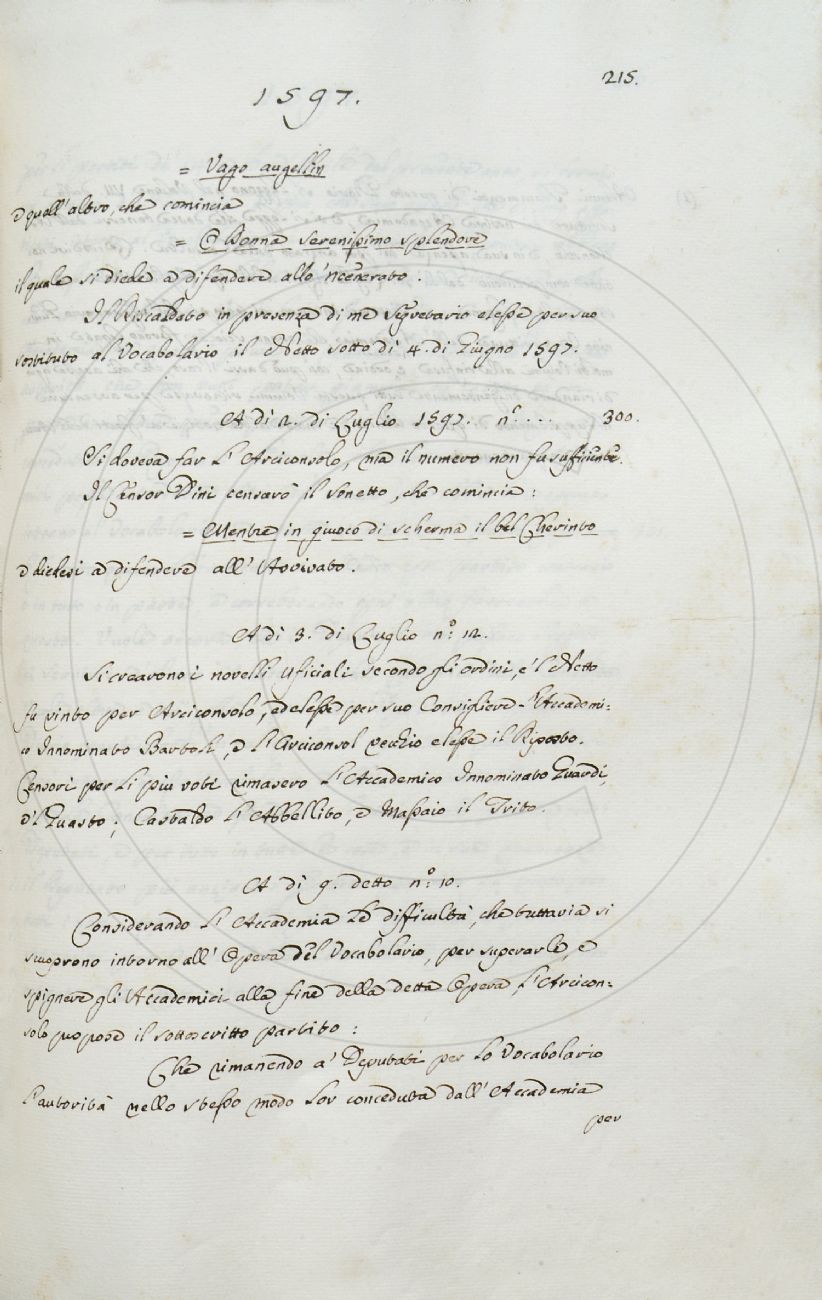 215.
1597.
= Vago augellin
e quell'altro, che comincia
= O Donna serenissimo splendore
il quale si diede a difendere allo 'ncenerato.
Il Riscaldato in presenza di me Segretario elesse per suo
sostituto al Vocabolario il Netto sotto dì 4. di Giugno 1597.
A dì 2. di Luglio 1597. n.° ... 300.
Si doveva far l'Arciconsolo, ma il numero non fu sufficiente.
Il Censor Dini censurò il sonetto, che comincia:
= Mentre in giuoco di scherma il bel Cherinto
e diedesi a difendere all'Avvivato.
A dì 3. di Luglio n.° 12.
Si crearono i novelli Uficiali secondo gli ordini, e 'l Netto
fu vinto per Arciconsolo, ed elesse per suo Consigliere l'Accademi:
co Innominato Bartoli, e l'Arciconsol vecchio elesse il Riposto.
Censori per li più voti rimasero l'Accademico Innominato Guardi,
e 'l Guasto; Castaldo l'Abbellito, e Massaio il Trito.
A dì 9. detto n.° 10.
Considerando l'Accademia le difficultà, che tuttavia si
scuoprono intorno all'Opera del Vocabolario, per superarle, e
spignere gli Accademici alla fine della detta Opera, l'Arcicon:
solo propose il sottoscritto partito:
Che rimanendo a' Deputati per lo Vocabolario
l'autorità nello stesso modo lor conceduta dall'Accademia
per